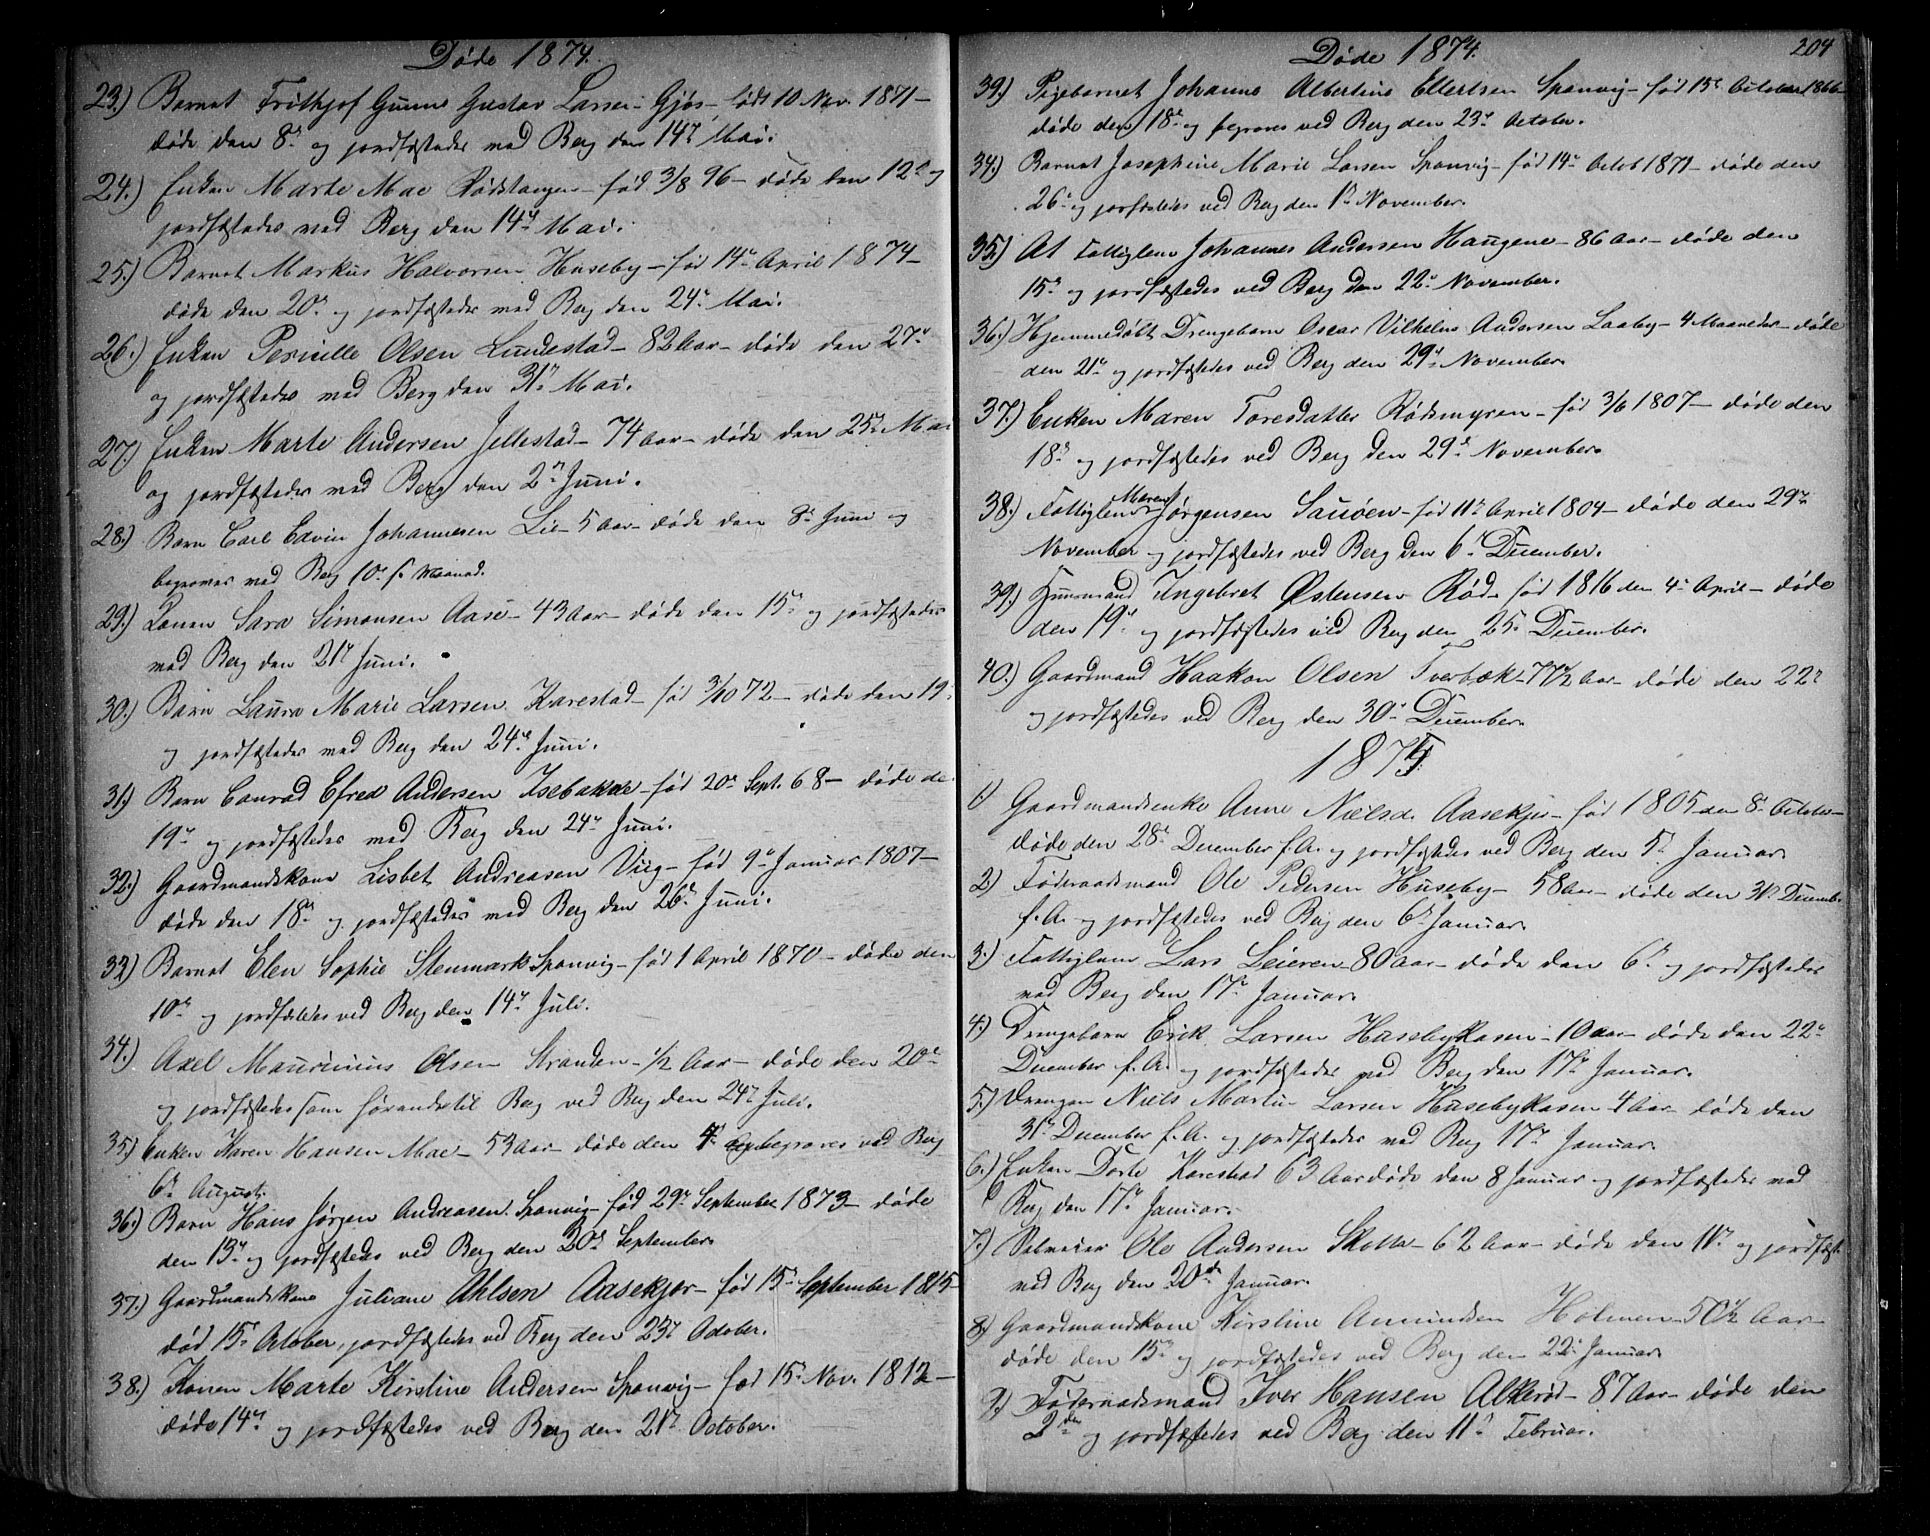 Døde 1874.
23.) Barnet Frithjof Gunne Gustav Larsen Gjøs, født 10 Nov. 1871 –
døde den 8de og jordfæstedes ved Berg den 14de Mai.
24.) Enken Marte Mae Rødstangen – fød 3/8 96 – døde den 12te og
jordfæstedes ved Berg den 14de Mai.
25.) Barnet Markus Halvorsen Huseby – fød 14de April 1874 –
døde den 20de og jordfæstedes ved Berg den 24de Mai.
26.) Enken Pernille Olsen Lundestad – 82 Aar – døde den 27de
og jordfæstedes ved Berg den 31te Mai.
27.) Enken Marte Andersen Jellestad – 74 Aar – døde den 25de Mai
og jordfæstedes ved Berg den 2den Juni.
28.) Barn Carl Edvin Johannesen Lie – 5 Aar – døde den 8de Juni og
begraves ved Berg 10de s. Maaned.
29.) Konen Sara Simonsen Aase – 43 Aar – døde den 15de og jordfæstedes
ved Berg den 21de Juni.
30.) Barn Laura Marie Larsen Karestad – fød 3/10 72 – døde den 19de
og jordfæstedes ved Berg den 24de Juni.
31.) Barn Conrad Efred Andersen Isebakke – fød 20de Sept. 68 – døde de
19de og jordfæstedes ved Berg den 24de Juni.
32.) Gaardmandskone Lisbet Andreasen Viig – fød 9de Januar 1807 –
døde den 18de og jordfæstedes ved Berg den 26de Juni.
33.) Barnet Elen Sophie Stenmark Sponvig – fød 1 April 1870 – døde den
10de og jordfæstedes ved Berg den 14de Juli.
34.) Axel Maurinius Olsen Stranden – 1/2 Aar – døde den 20de
og jordfæstedes som hørende til Berg ved Berg den 24de Juli.
35.) Enken Karen Hansen Mae – 53 Aar – døde den 4de og begraves ved Berg
6te August.
36.) Barn Hans Jørgen Andreasen Sponvig – fød 29de September 1873 – døde
den 13de og jordfæstedes ved Berg den 20de September.
37.) Gaardmandskone Juliane Ahlsen Aasekjær – fød 15de September 1815 –
død 15de October, jordfæstedes ved Berg den 23de October.
38.) Konen Marte Kirstine Andersen Sponvig – fød 15de Nov. 1812 –
døde 14de og jordfæstedes ved Berg den 21de October.
Døde 1874. 204
39.) Pigebarnet Johanne Albertine Ellertsen Sponvig – fød 15de October 1866 –
døde den 18de og begraves ved Berg den 23de October.
34.) Barnet Josephine Marie Larsen Sponvig – fød 14de Octob 1871 – døde den
26de og jordfæstedes ved Berg den 1ste November.
35.) At Fattiglem Johannes Andersen Haugene – 86 Aar – døde den
15de og jordfæstedes ved Berg den 22de November.
36.) Hjemmedøbt Drengebarn Oscar Vilhelm Andersen Laaby – 4 Maaneder – døde
den 21de og jordfæstedes ved Berg den 29de November.
37.) Enken Maren Toresdatter Rødsmyren – fød 3/6 1807 – døde den
18de og jordfæstedes ved Berg den 29de November.
38.) Fattiglem Maren Jørgensen Sauøen – fød 11te April 1804 – døde den 29de
November og jordfæstedes ved Berg den 6te December.
39.) Huusmand Ingebret Østensen Rød – fød 1816 den 4de April – døde
den 19de og jordfæstedes ved Berg den 25de December.
40.) Gaardmand Haakon Olsen Tverbæk – 77 1/2 Aar – døde den 22de
og jordfæstedes ved Berg den 30te December.
1875
1.) Gaardmandsenke Anne Nielsd. Aasekjær – fød 1805 den 8de October –
døde den 28de December f. A. og jordfæstedes ved Berg den 5te Januar.
2.) Føderaadsmand Ole Pedersen Huseby – 58 Aar – døde den 31te Decemb.
f. A. og jordfæstedes ved Berg den 6te Januar.
3.) Fattiglem Lars Leieren – 80 Aar – døde den 6te og jordfæstedes
ved Berg den 17de Januar.
4.) Drengebarn Erik Larsen Husebykasen – 10 Aar – døde den 22de
December f. A. og jordfæstedes ved Berg den 17de Januar.
5.) Drengen Niels Martin Larsen Husebykasen 4 Aar – døde den
31te December f. A. og jordfæstedes ved Berg 17de Januar.
6.) Enken Dorte Karestad 63 Aar døde den 8 Januar og jordfæstedes ved
Berg den 17de Januar.
7.) Selveier Ole Andersen Skotte – 62 Aar – døde den 11te og jordfæst.
ved Berg den 20de Januar.
8.) Gaardmandskone Kirstine Amundsen Holmen – 50 1/2 Aar –
døde den 15de og jordfæstedes ved Berg den 22de Januar.
9.) Føderaadsmand Iver Hansen Alkerød – 87 Aar – døde den
2den og jordfæstedes ved Berg den 11te Februar.